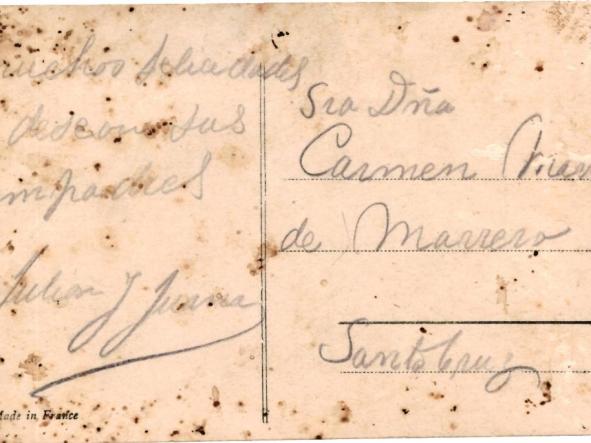 muchos felicidades
desean sus
mpadres
Julian y Juana
Made in France
Sra Dña
Carmen
de Marrero
Santa Cruz